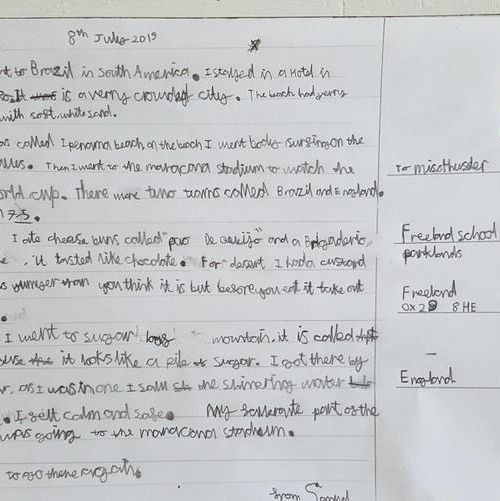 8th July 2019
nt to Brazil in South America. I stayed in a Hotel in
it is a verry crowded city. The beach had very
with soft white sand.
as called Ipenama beach, on the beach I went body surfing on the
Then I went to the maracana stadium to watch the
orld cup. there were two teams called Brazil and England.
7-5.
I ate cheese buns called "pao De queijo" and a Brigaderio
it tasted like chocolate. For desert I had a custard
than you think it is but before you eat it take out
I went to sugar mountain, it is called
it looks like a pile of sugar. I got there by
as I was in one I saw the shimering water
. I felt calm and safe. My faverate part of the
was going to the maracana stadium.
to go there again.
from Samuel
To missthusder
Freeland school
parklands
Freeland
OX29 8HE
England